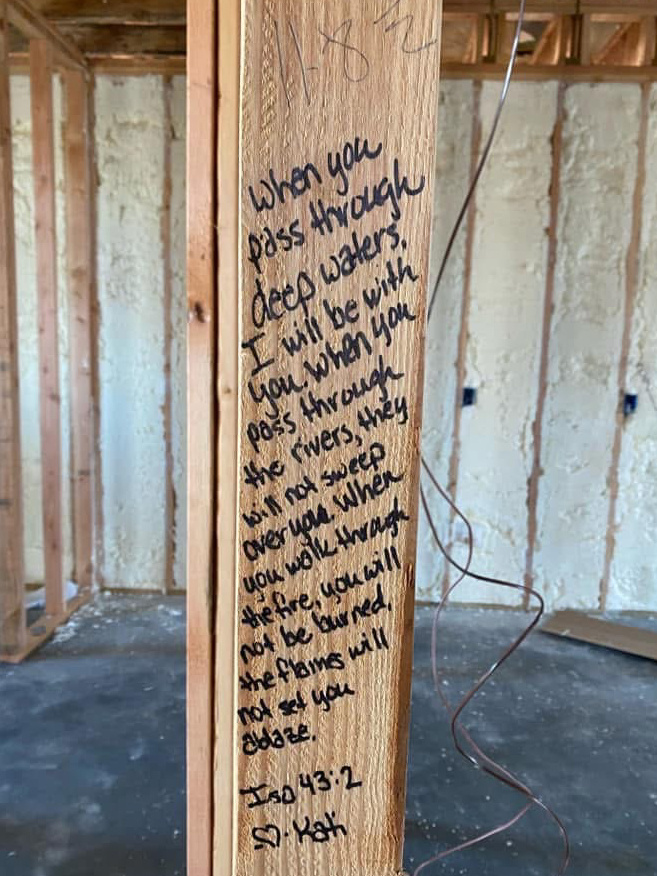 11-8 ½
When you
pass through
deep waters,
I will be with
you. When you
pass through
the rivers, they
will not sweep
over you. When
you walk through
the fire, you will
not be burned,
the flames will
not set you
ablaze.
Isa 43:2
♡ - Kati